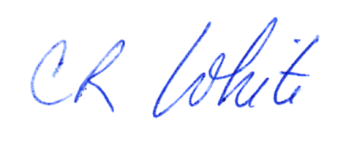 CR White